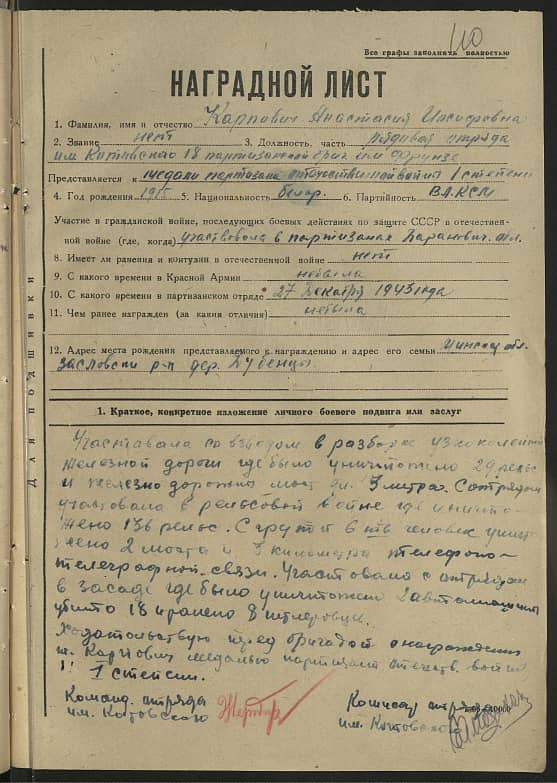 110
Все графы заполнять полностью
НАГРАДНОЙ ЛИСТ
1. Фамилия, имя и отчество Карпович Анастасия Иосифовна
2. Звание нет 3. Должность, часть рядовая отряда
им. Котовского 18 партизанской бриг. им Фрунзе
Представляется к медали партизана отечественной войны 1 степени
4. Год рождения 5. Национальность белар. 6. Партийность ВЛКСМ
Участие в гражданской войне, последующих боевых действиях по защите СССР и отечествен-
ной войне (где, когда) участвовала в партизанах Баранович. обл.
8. Имеет ли ранения и контузии в отечественной войне нет
9. С какого времени в Красной Армии небыла
10. С какого времени в партизанском отряде 27 декабря 1943 года
11. Чем ранее награжден (за какия отличия) небыла
12. Адрес места рождения представляемого к награждению и адрес его семьи Минская обл.
засловски р-н дер. Дубенцы
Для подшивки
1. Краткое, конкретное изложение личного боевого подвига или заслуг
Участвовала со взводом в разборке узкоколейной
железной дороги где было уничтожено 29 рельс
и железно дорожны мост дл. 3 метра. С отрядом
участвовала в рельсовой войне где уничто-
жено 136 рельс. С группой 6 человек унич
жено 2 моста и 3 километра телефоно-
телеграфной связи. Участвовала с отрядом
в засаде где было уничтожено 2 автомашины
убито 18 и ранено 8 гитлеровцев.
Ходатальствую перед бригадой о награждении
т. Карпович медалью партизан отечеств. войны
1 степени.
Команд. отряда Комиссар отряда
им. Котовского им. Котовского